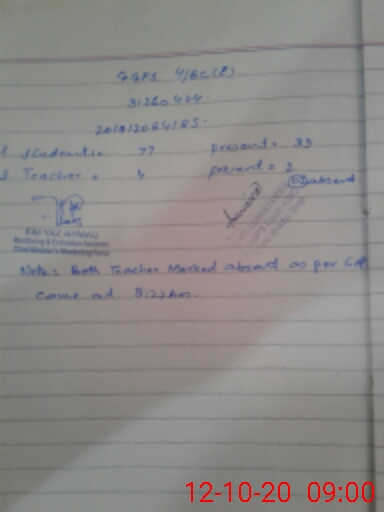 GGPS 4/BC(E)
31260424
students = 77 present = 33
Teacher = 4 present = 2
absent
FAYYAZ AHMAD
Monitoring & Evaluation Assistant
Chief Minister's Monitoring Force
Note: Both Teacher Marked absent as per
came at 8:22 Am.
12-10-20 09:00